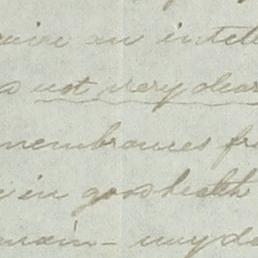 quire an intell
a not very clear
membrances fr
in good health
main - my de